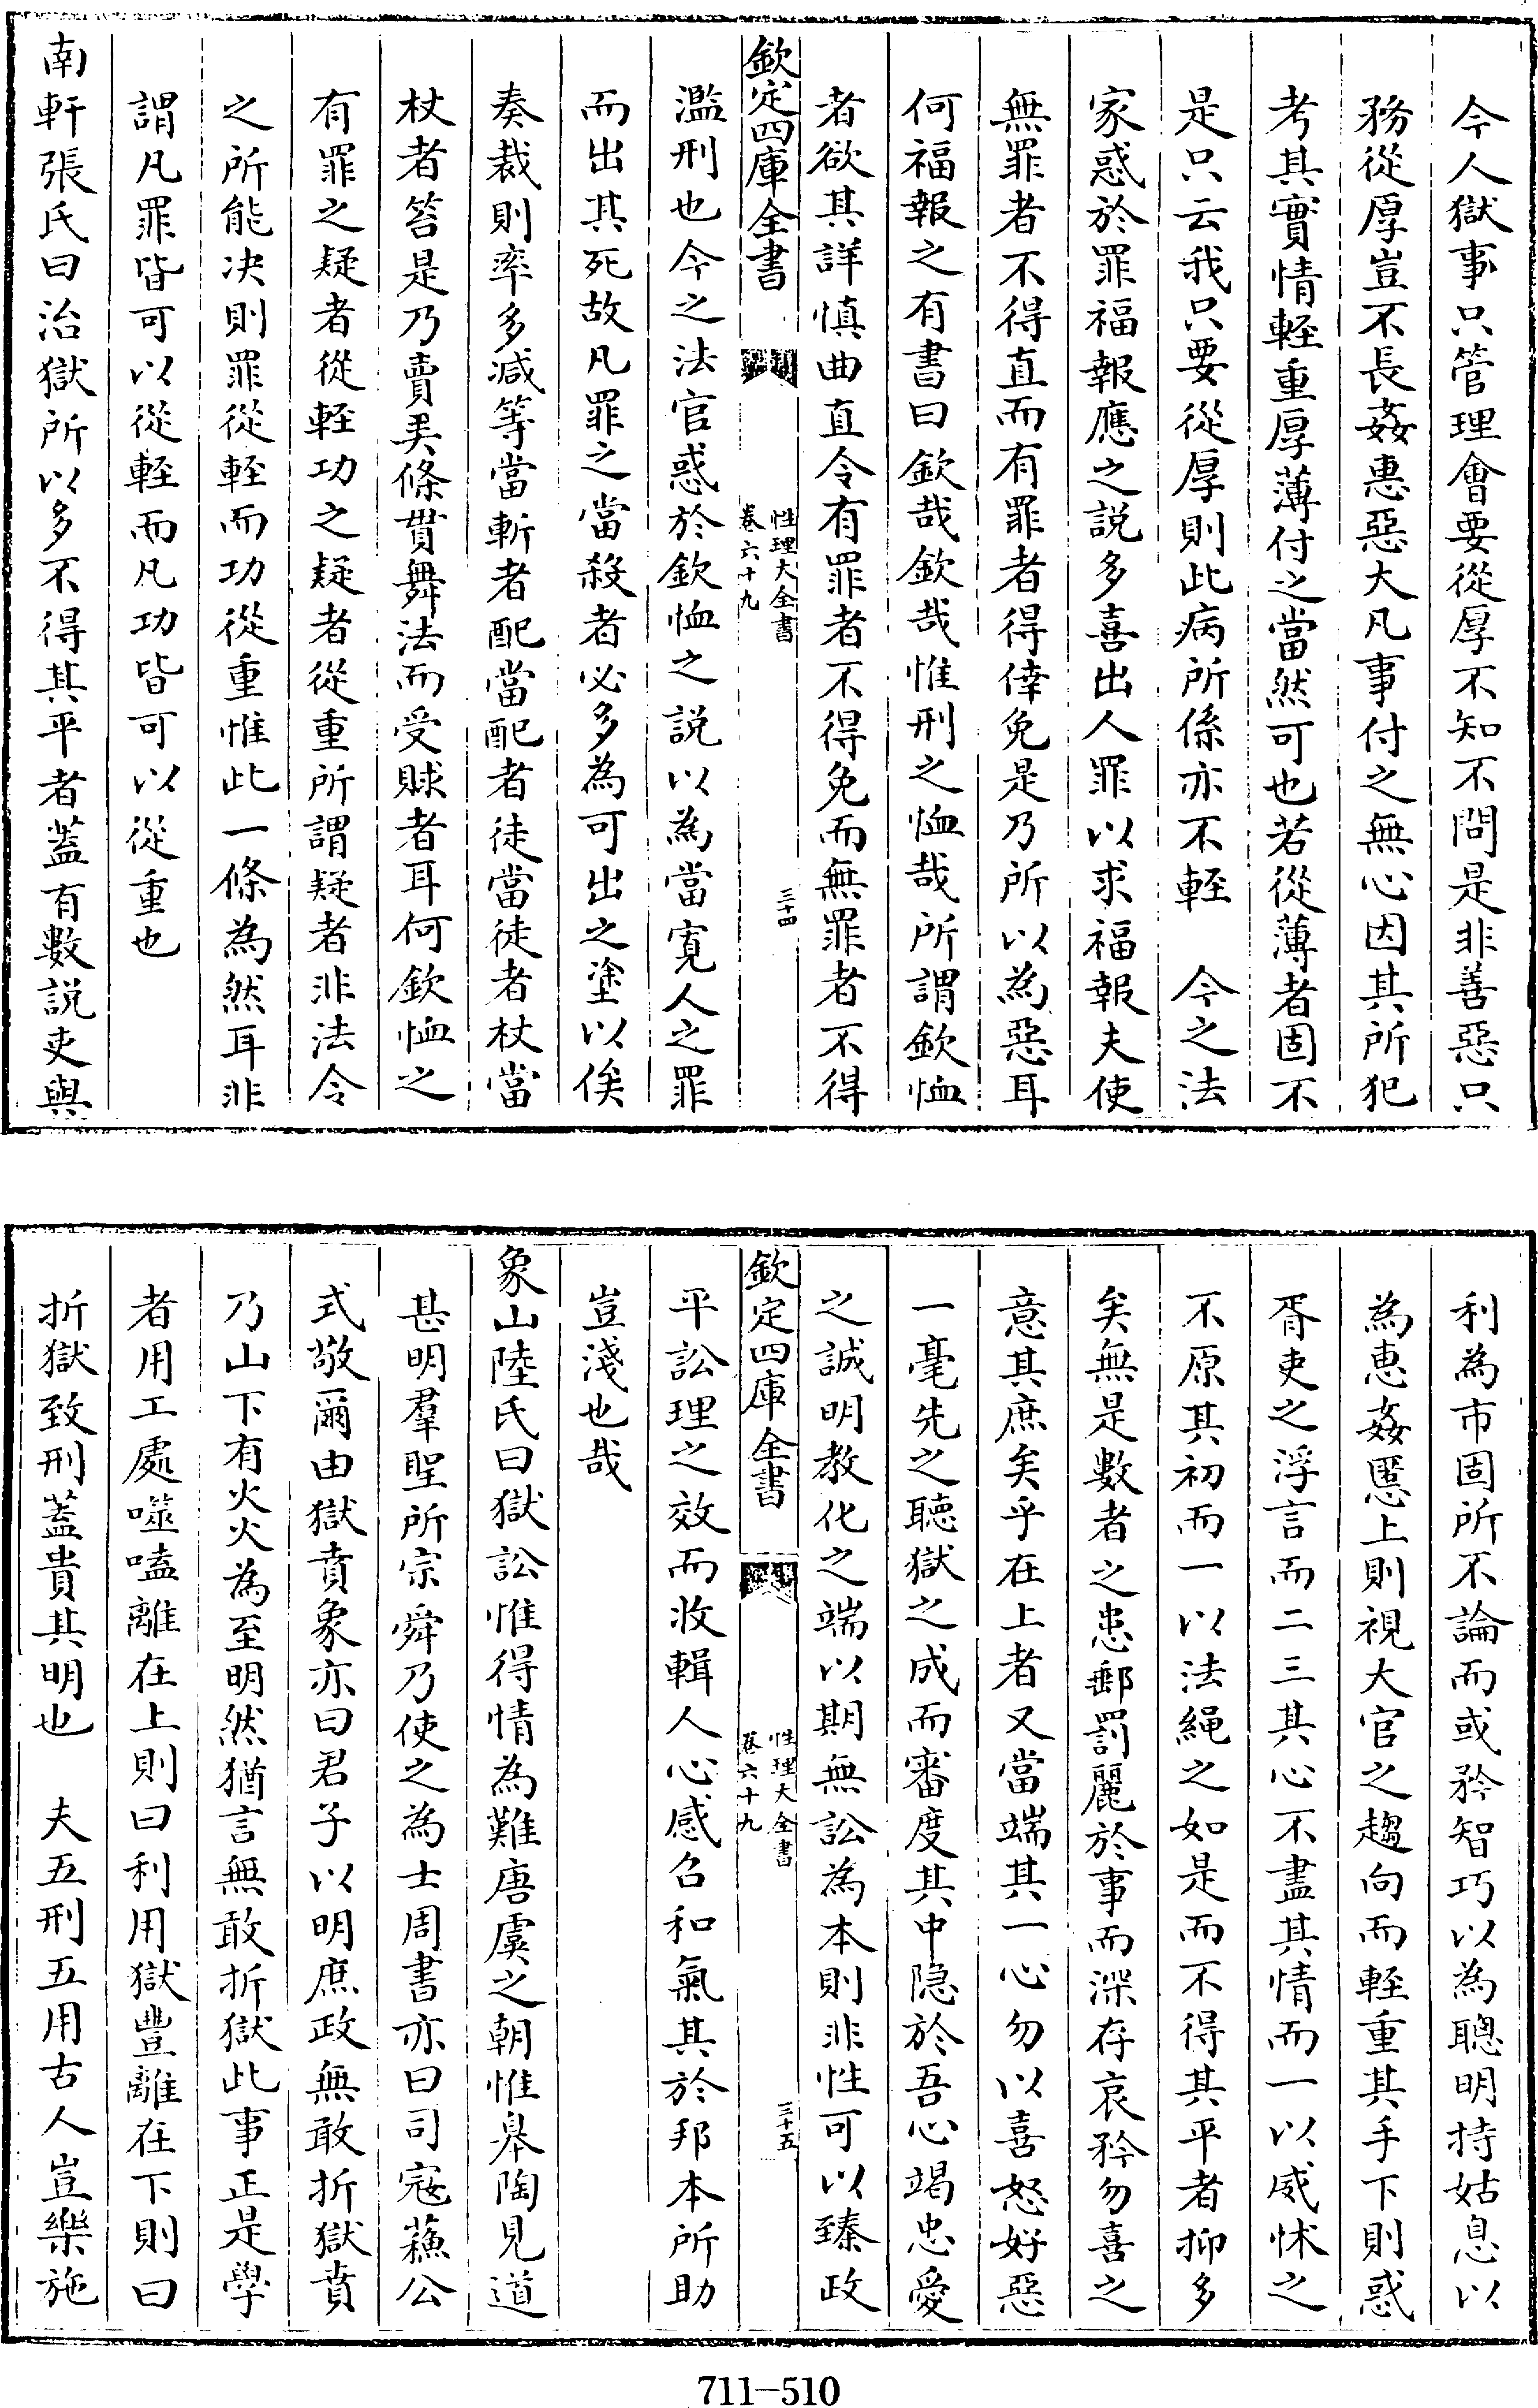 今人獄事只管理會要從厚不知不問是非善惡只
務從厚豈不長姦惠惡大凡事付之無心因其所犯
考其實情輕重厚薄付之當然可也若從薄者固不
是只云我只要從厚則此病所係亦不輕　今之法
家惑於罪福報應之說多喜出人罪以求福報夫使
無罪者不得直而有罪者得倖免是乃所以為惡耳
何福報之有書曰欽哉欽哉惟刑之恤哉所謂欽恤
者欲其詳慎曲直令有罪者不得免而無罪者不得
欽定四庫全書
性理大全書
卷六十九
三十四
濫刑也今之法官惑於欽恤之說以為當寛人之罪
而出其死故凡罪之當殺者必多為可出之塗以俟
奏裁則率多減等當斬者配當配者徒當徒者杖當
杖者笞是乃賣弄條貫舞法而受賕者耳何欽恤之
有罪之疑者從輕功之疑者從重所謂疑者非法令
之所能決則罪從輕而功從重惟此一條為然耳非
謂凡罪皆可以從輕而凡功皆可以從重也
南軒張氏曰治獄所以多不得其平者蓋有數說吏與
利為市固所不論而或矜智巧以為聰明持姑息以
為恵姦慝上則視大官之趨向而輕重其手下則惑
胥吏之浮言而二三其心不盡其情而一以威怵之
不原其初而一以法繩之如是而不得其平者抑多
矣無是數者之患郵罰麗於事而深存哀矜勿喜之
意其庶矣乎在上者又當端其一心勿以喜怒好惡
一毫先之聽獄之成而審度其中隠於吾心竭忠愛
之誠明教化之端以期無訟為本則非惟可以臻政
欽定四庫全書
性理大全書
卷六十九
三十五
平訟理之效而收輯人心感召和氣其於邦本所助
豈淺也哉
象山陸氏曰獄訟惟得情為難唐虞之朝惟皋陶見道
甚明羣聖所宗舜乃使之為士周書亦曰司寇蘇公
式敬爾由獄賁象亦曰君子以明庶政無敢折獄賁
乃山下有火火為至明然猶言無敢折獄此事正是學
者用工處噬嗑離在上則曰利用獄豐離在下則曰
折獄致刑蓋貴其明也　夫五刑五用古人豈樂施
711—510